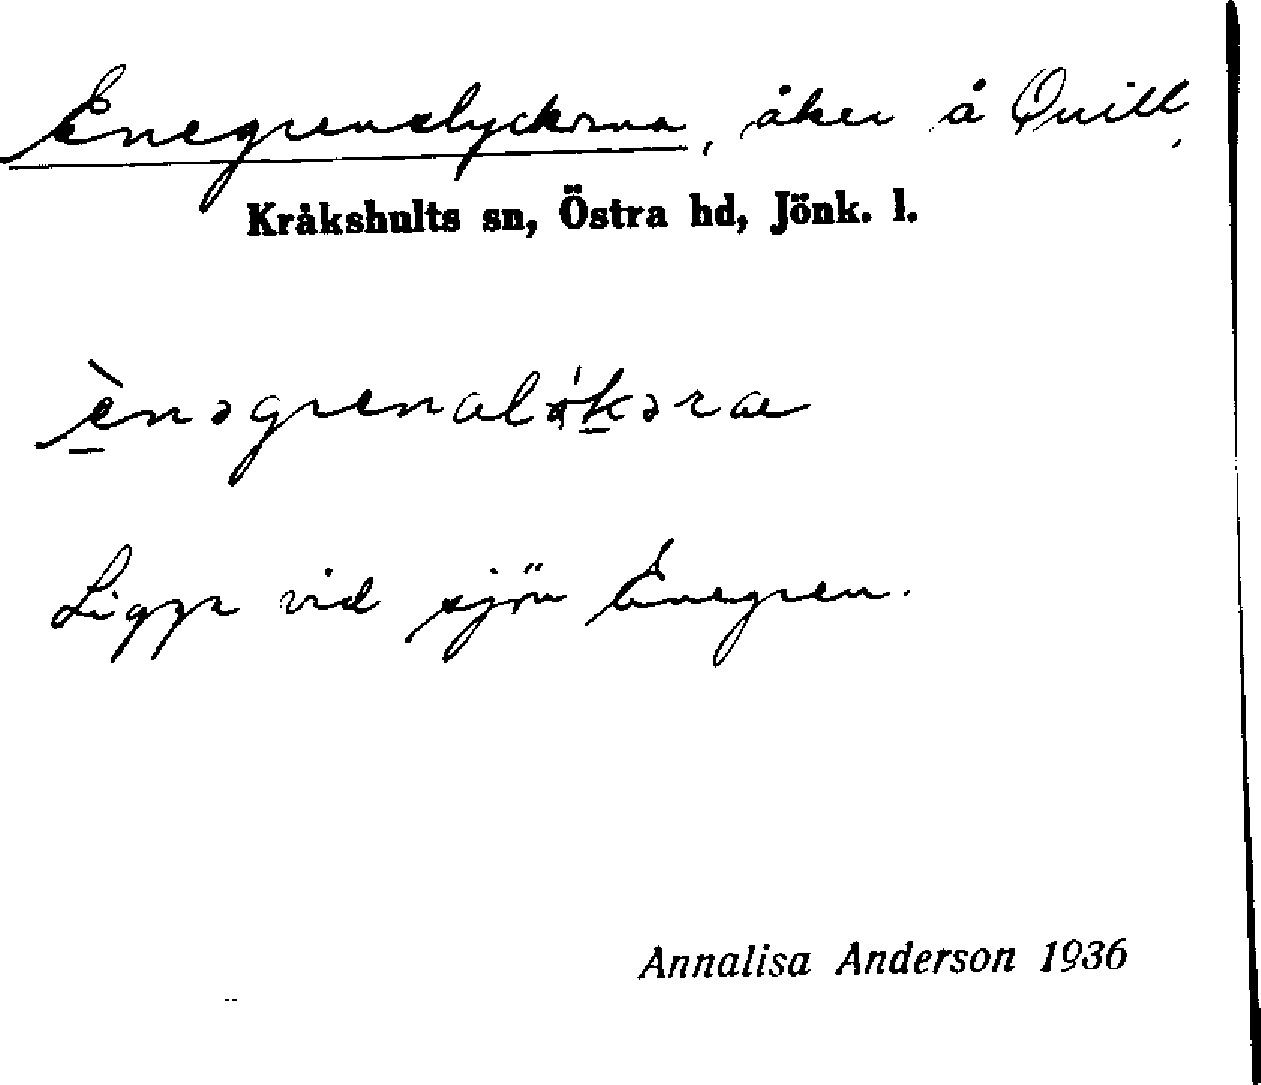 Enegrenslyckorna, åker å Quill,
Kråkshults sn, Östra hd, Jönk. l.
Ligger vid sjön Enegren.
Annalisa Anderson 1936